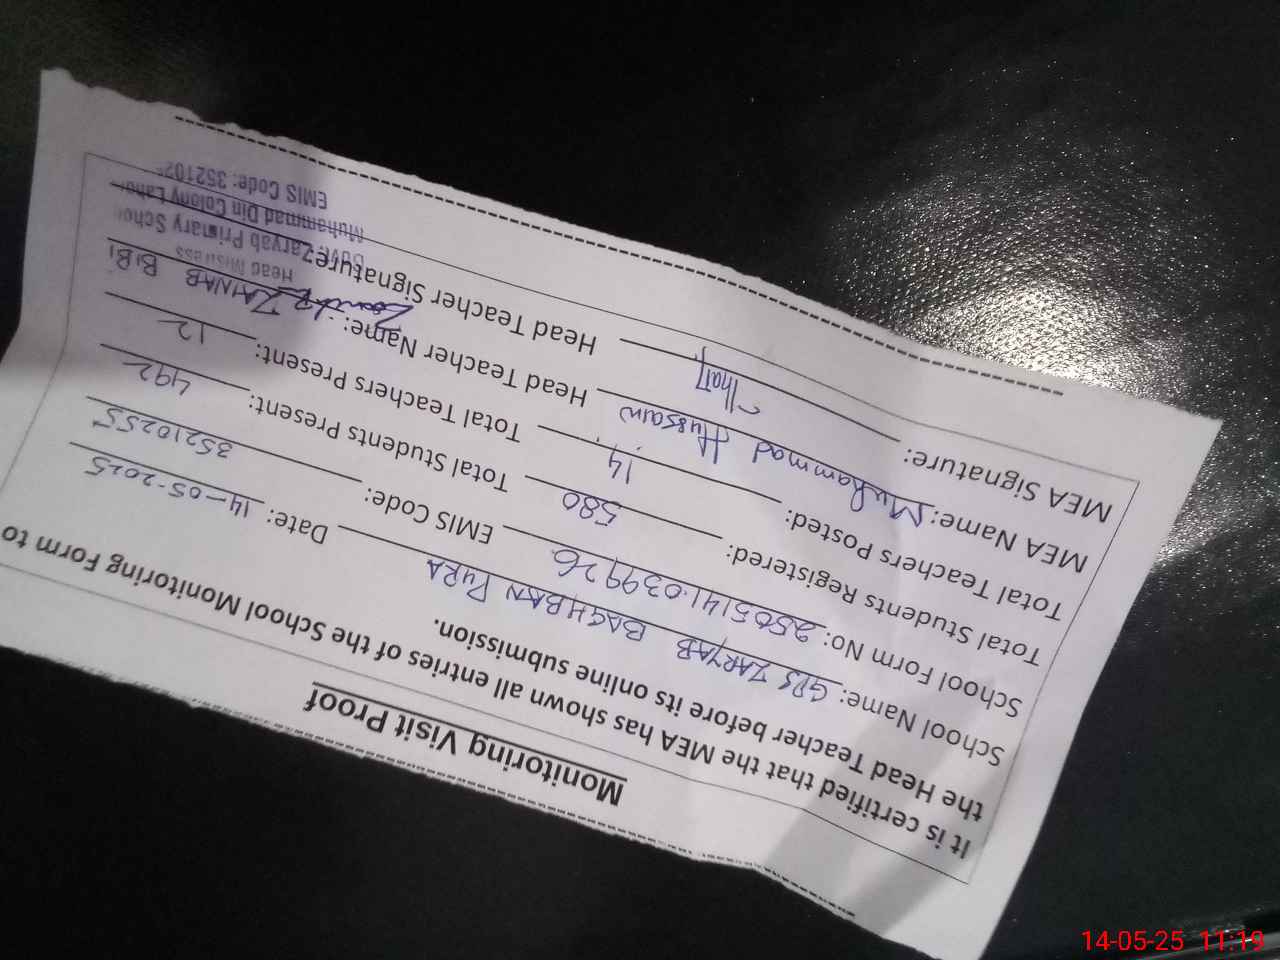 Monitoring Visit Proof
It is certified that the MEA has shown all entries of the School Monitoring Form to
the Head Teacher before its online submission.
School Name: GPS ZARYAB BAGHBAN PURA Date: 14-05-2025
School Form No: 2505141.039926 EMIS Code: 35210255
Total Students Registered: 580 Total Students Present: 492
Total Teachers Posted: 14 Total Teachers Present: 12
MEA Name: Muhammad Hussain Head Teacher Name: ZAINAB BiBi
MEA Signature: Head Teacher Signature:
Head Mistress
Govt. Zaryab Primary Scho
Muhammad Din Colony Lahor
EMIS Code: 352102
14-05-25 11:19